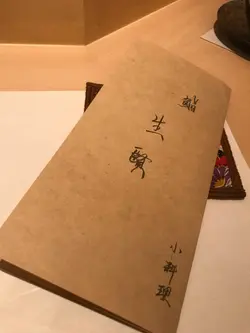 鮨
生賢
小料理